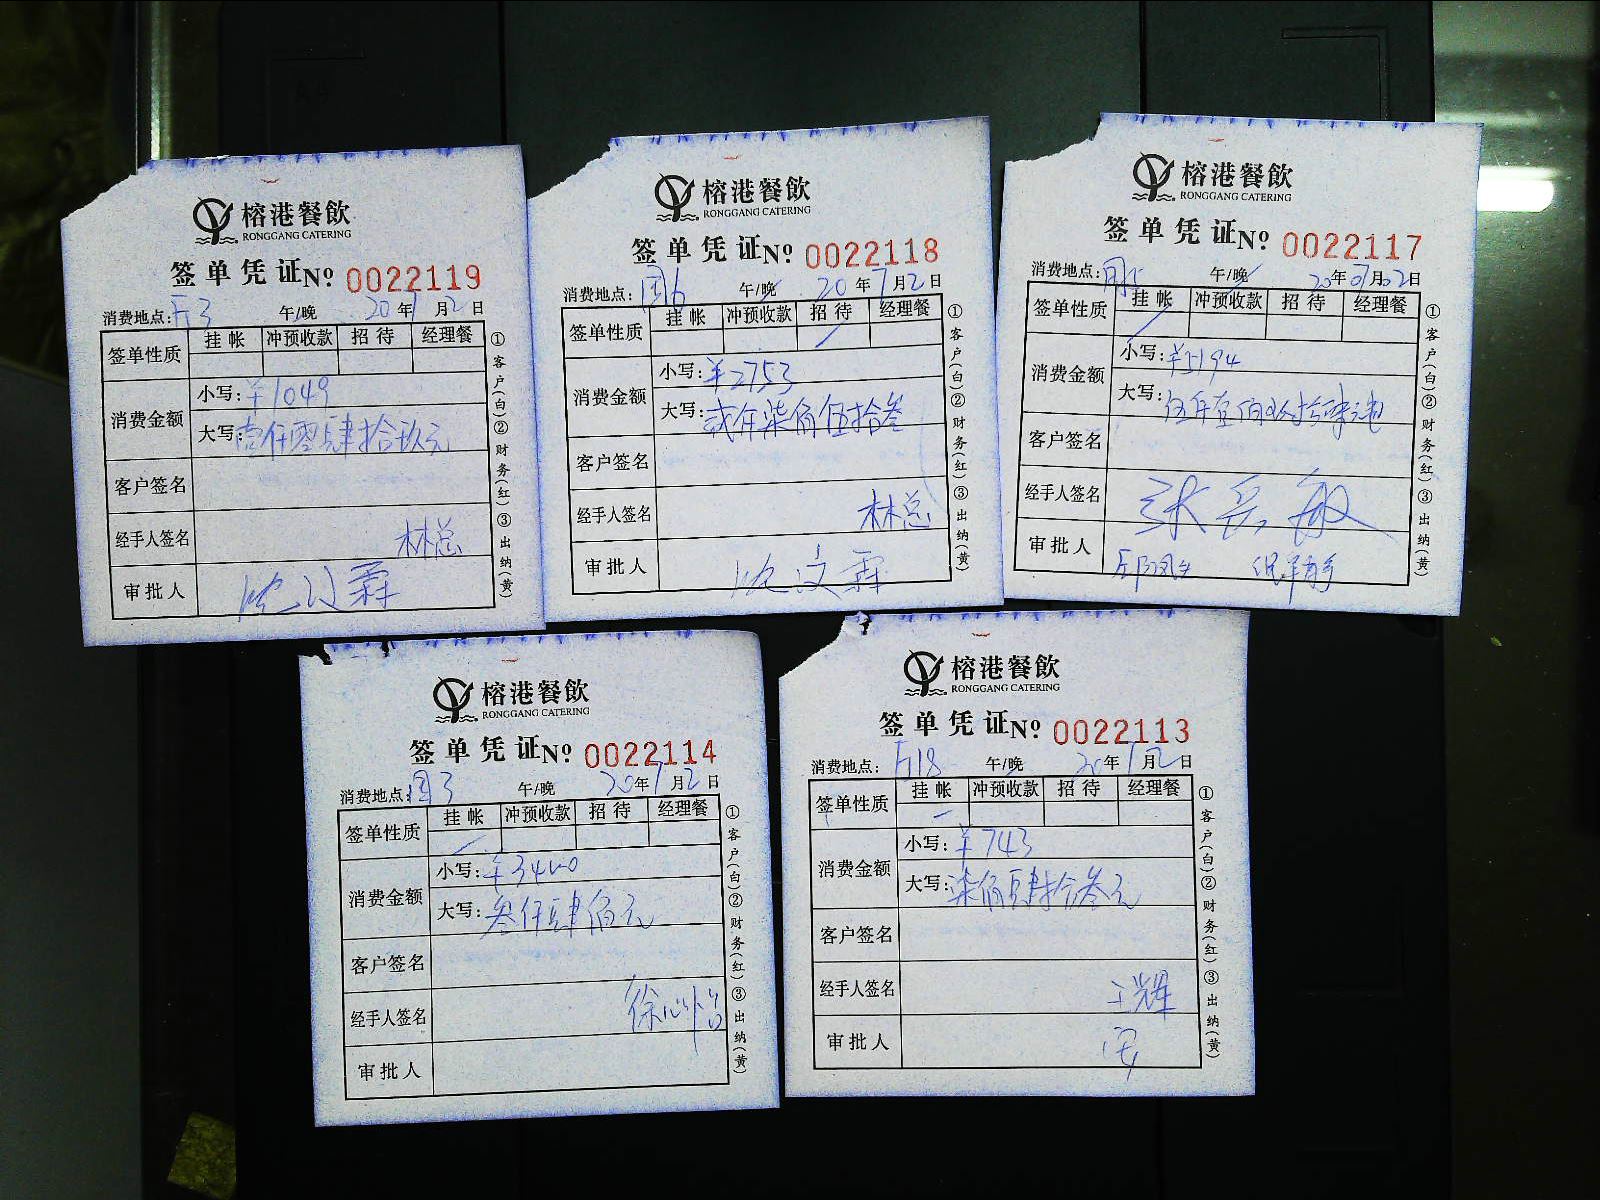 榕港餐飲
RONGGANG CATERING
签单凭证№ 0022119
消费地点: 午/晚 20年1月2日
签单性质 挂帐 冲预收款 招待 经理餐
消费金额
小写: ¥1049
大写: 壹仟零肆拾玖元
客户签名
经手人签名 林总
审批人 沈文霖
①客户(白)②财务(红)③出纳(黄)
榕港餐飲
RONGGANG CATERING
签单凭证№ 0022118
消费地点: 午/晚 20年1月2日
签单性质 挂帐 冲预收款 招待 经理餐
消费金额
小写: ¥2753
大写: 贰仟柒佰伍拾叁
客户签名
经手人签名 林总
审批人 沈文霖
①客户(白)②财务(红)③出纳(黄)
榕港餐飲
RONGGANG CATERING
签单凭证№ 0022117
消费地点: 午/晚 20年01月02日
签单性质 挂帐 冲预收款 招待 经理餐
消费金额
小写: ¥5194
大写: 伍仟壹佰玖拾肆元
客户签名
经手人签名
审批人
①客户(白)②财务(红)③出纳(黄)
榕港餐飲
RONGGANG CATERING
签单凭证№ 0022114
消费地点: 午/晚 20年1月2日
签单性质 挂帐 冲预收款 招待 经理餐
消费金额
小写: ¥3400
大写: 叁仟肆佰元
客户签名
经手人签名 徐心怡
审批人
①客户(白)②财务(红)③出纳(黄)
榕港餐飲
RONGGANG CATERING
签单凭证№ 0022113
消费地点: 午/晚 20年1月2日
签单性质 挂帐 冲预收款 招待 经理餐
消费金额
小写: ¥743
大写: 柒佰肆拾叁元
客户签名
经手人签名 王辉
审批人
①客户(白)②财务(红)③出纳(黄)